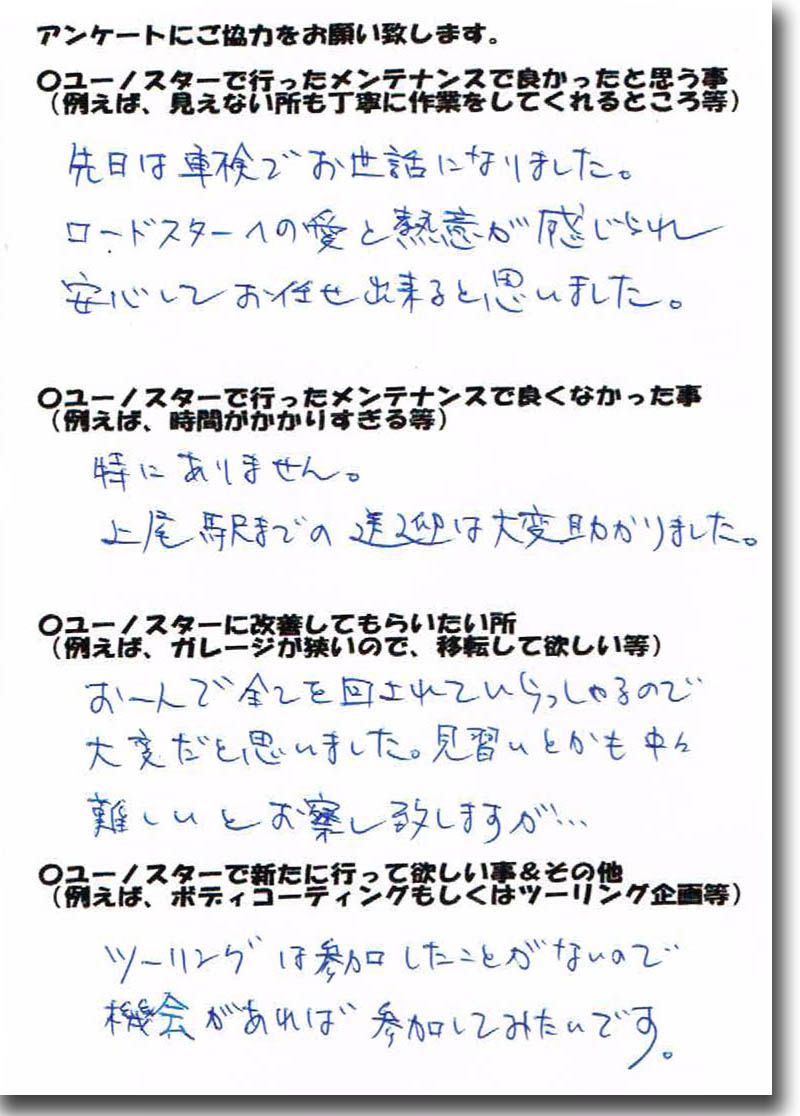 アンケートにご協力をお願い致します。
〇ユーノスターで行ったメンテナンスで良かったと思う事
（例えば、見えない所も丁寧に作業をしてくれるところ等）
先日は車検でお世話になりました。
ロードスターへの愛と熱意が感じられ
安心してお任せ出来ると思いました。
〇ユーノスターで行ったメンテナンスで良くなかった事
（例えば、時間がかかりすぎる等）
特にありません。
上尾駅までの送迎は大変助かりました。
〇ユーノスターに改善してもらいたい所
（例えば、ガレージが狭いので、移転して欲しい等）
お一人で全てを回されていらっしゃるので
大変だと思いました。見習いとかも中々
難しいとお察し致しますが…
〇ユーノスターで新たに行って欲しい事＆その他
（例えば、ボディコーティングもしくはツーリング企画等）
ツーリングは参加したことがないので
機会があれば参加してみたいです。